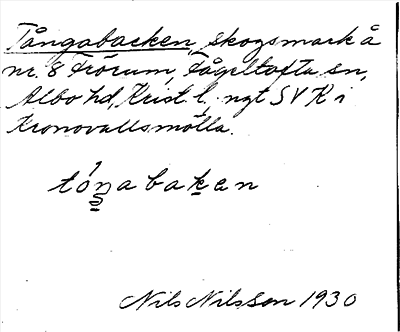 Tångabacken, skogsmark å
nr. 8 Frörum, Fågeltofta sn,
Albo hd, Krist. l., ngt SVK i
Kronovallsmölla.
tóŋabaken
Nils Nilsson 1930